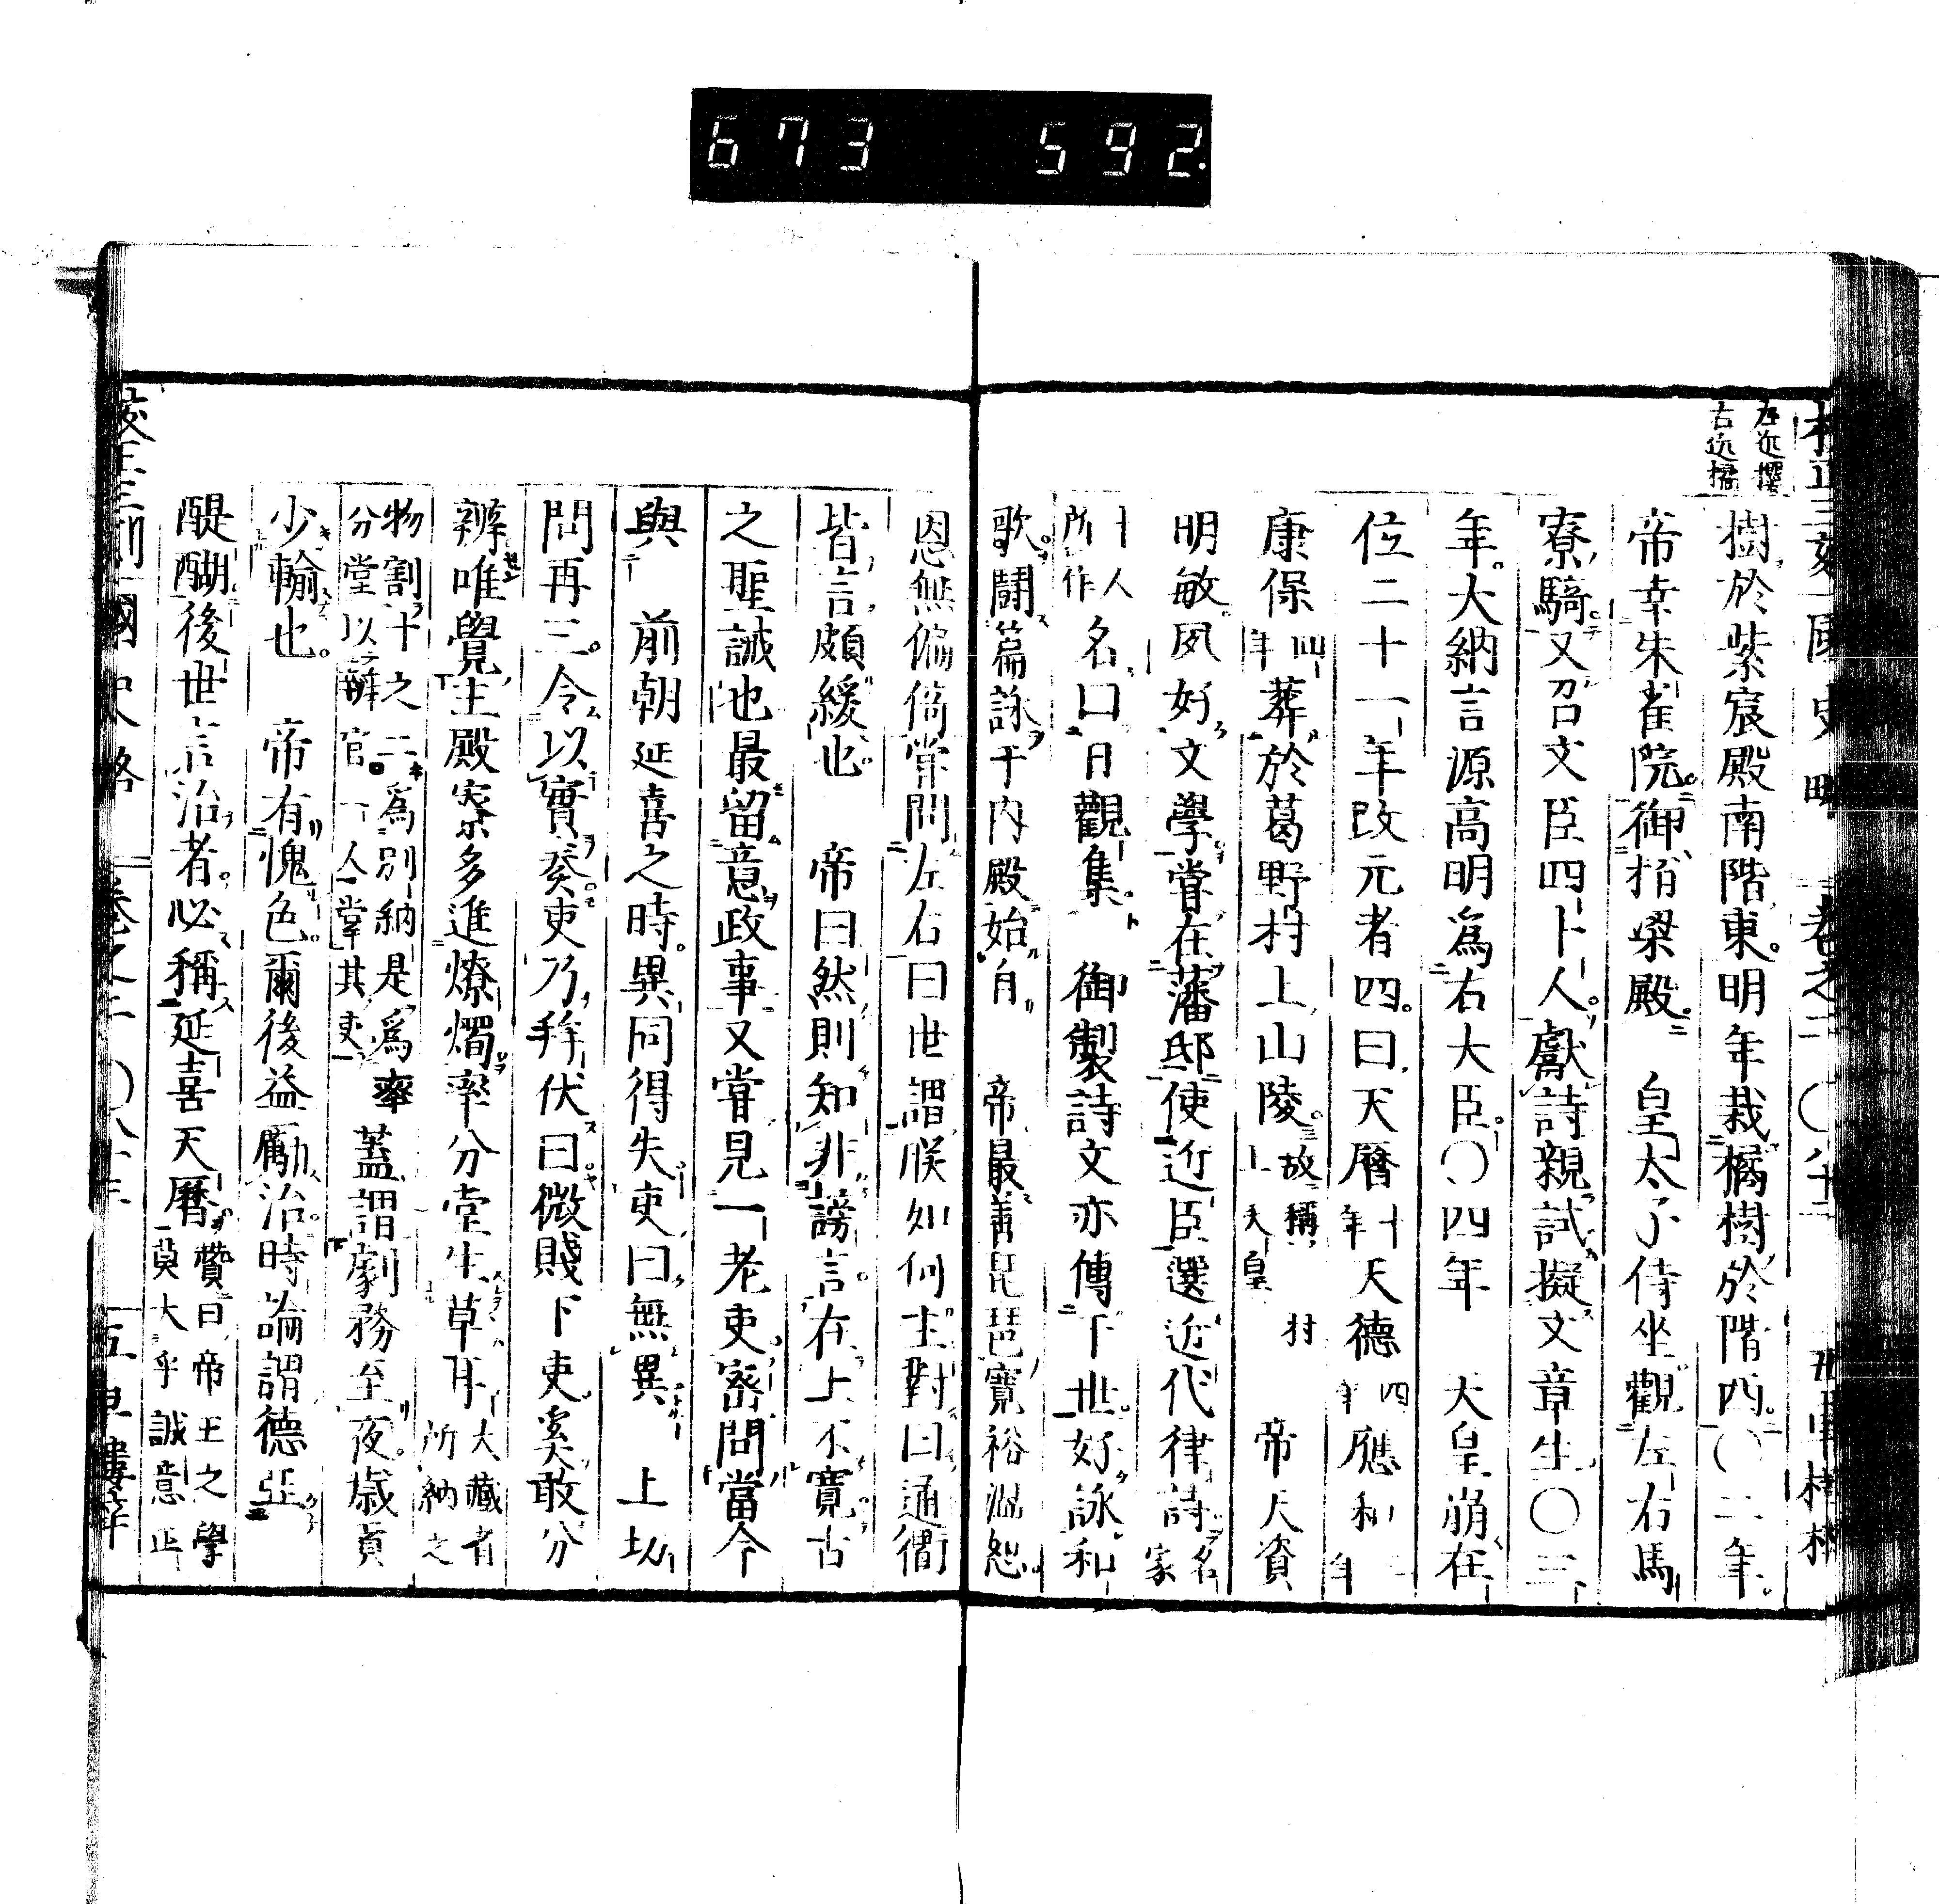 673 592
左近櫻
右近橘
樹於紫宸殿南階東。明年栽橘樹於階西。〇二年。
帝幸朱雀院。御栢梁殿。皇太子侍坐觀左右馬
寮騎。又召文臣四十人。獻詩親試擬文章生〇三
年。大納言源高明爲右大臣。〇四年 天皇崩在
位二十一年改元者四。曰天曆十年天德四年應和三年
康保四年葬於葛野村上山陵。故稱村上天皇 帝天資
明敏。夙好文學。嘗在藩邸使近臣選近代律詩名家
十人所作名曰日觀集。 御製詩文亦傳下世。好詠和
歌。鬪篇詠于内殿始自 帝最善琵琶寛裕温恕。
恩無偏倚嘗問左右曰世謂朕如何主對曰通衢
皆言頗緩也 帝曰然則知非謗言。在上不寛古
之聖誡也最留意政事又嘗見一老吏。密問當今
與 前朝延喜之時。異同得失。吏曰無異 上切
問再三。令以實奏。吏乃拜伏曰。微賤下吏奚敢分
辨唯覺主殿寮多進燎燭率分堂生草耳大藏省所納之
物割十之二爲別納是爲率分堂以辨官一人掌其吏蓋謂劇務至夜。歳貢
少輸也。 帝有愧色。爾後益勵治。時論謂德亞
醍醐後世言治者。必稱延喜天曆贊曰帝王之學莫大乎誠意正